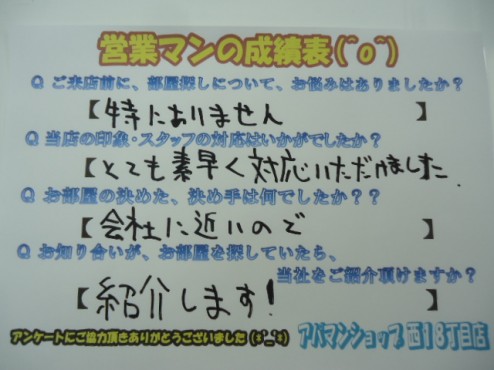 営業マンの成績表(^o^)
Q ご来店前に、部屋探しについて、お悩みはありましたか？
【 特にありません 】
Q 当店の印象・スタッフの対応はいかがでしたか？
【 とても素早く対応いただけました 】
Q お部屋の決めた、決め手は何でしたか？？
【 会社に近いので 】
Q お知り合いが、お部屋を探していたら、
当社をご紹介頂けますか？
【 紹介します! 】
アンケートにご協力頂きありがとうございました(*^_^*)
アパマンショップ 西18丁目店